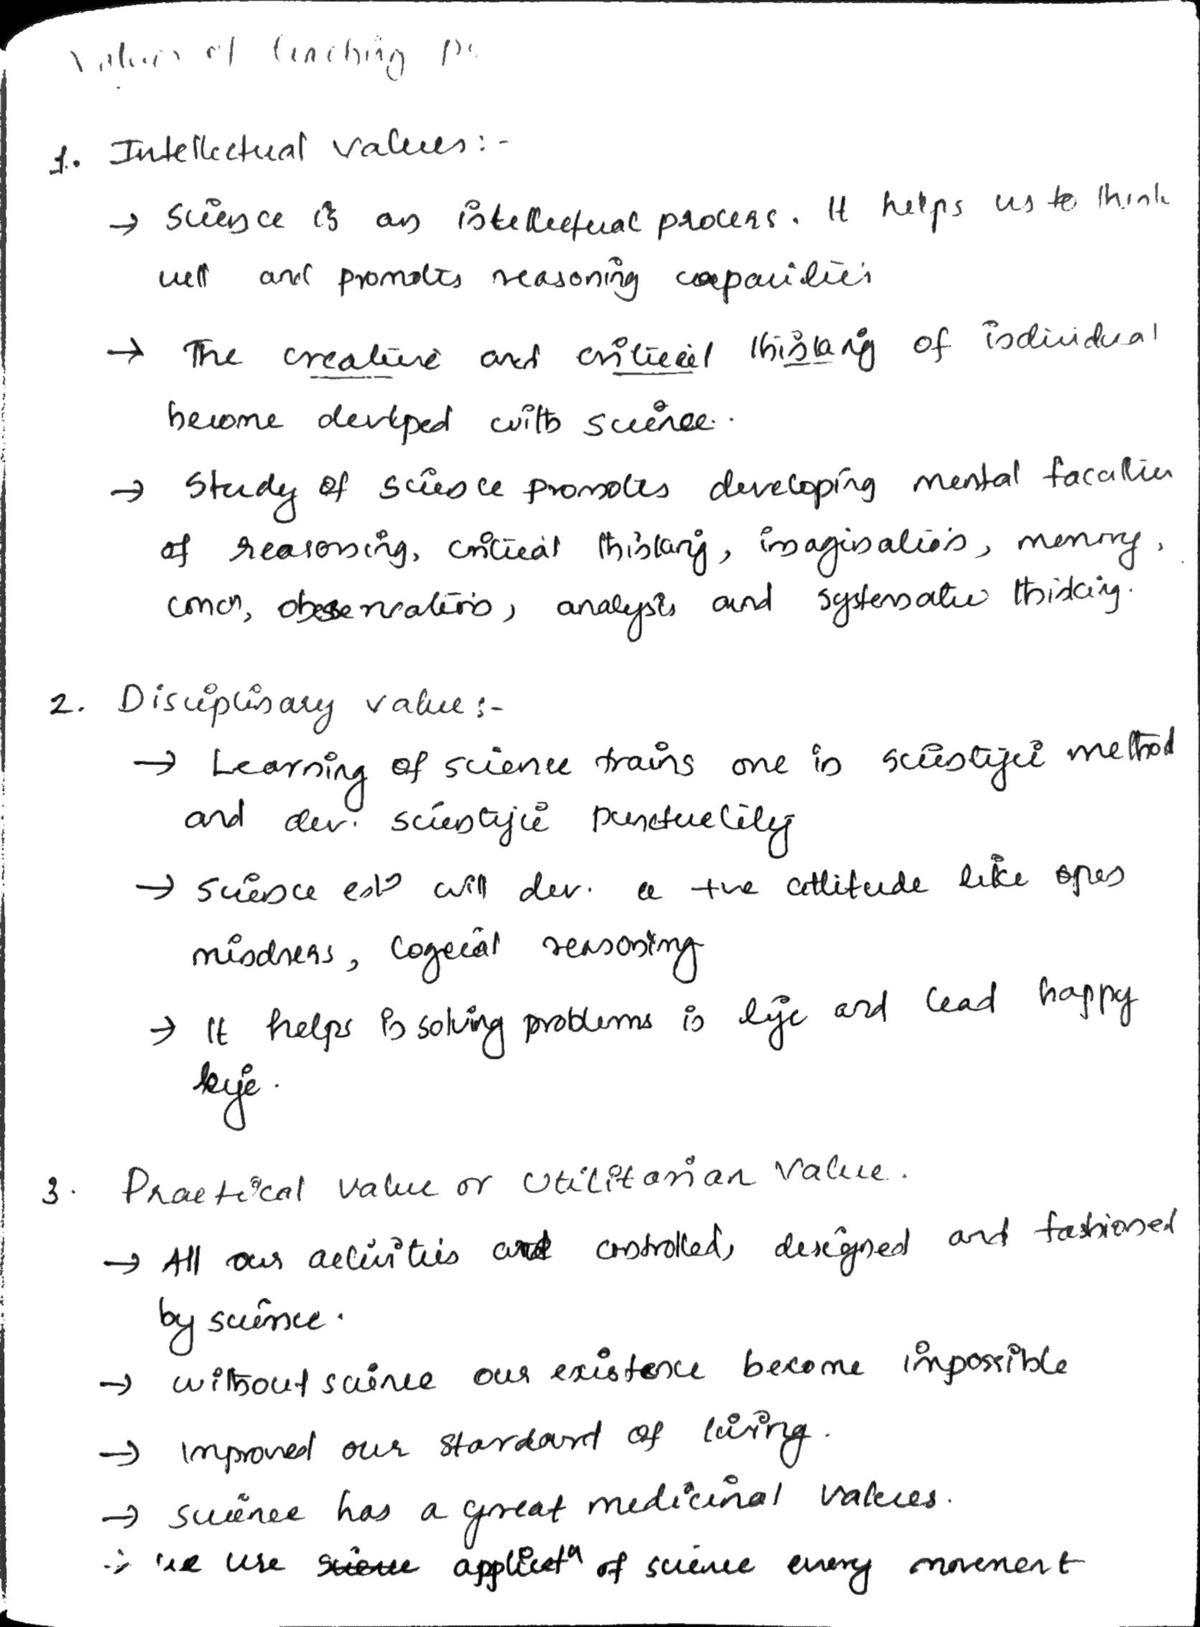 Values of teaching
1. Intellectual values:-
→ Science is an intellectual process. It helps us to think
well and promotes reasoning capacities
→ The creative and critical thinking of individual
become devlped with science.
→ Study of science promotes developing mental faculties
of reasoning, critical thinking, imagination, memory,
concn, observation, analysis and systematic thinking.
2. Disciplinary value:-
→ Learning of science trains one in scientific method
and dev. scientific punctuality
→ Science will dev. a +ve attitude like open
mindness, logical reasoning
→ It helps in solving problems in life and lead happy
life.
3. Practical value or Utilitarian value.
→ All our activities are controlled, designed and fashioned
by science.
→ without science our existence become impossible
→ improved our standard of living.
→ science has a great medicinal values.
∴ we use science applictn of science every movement